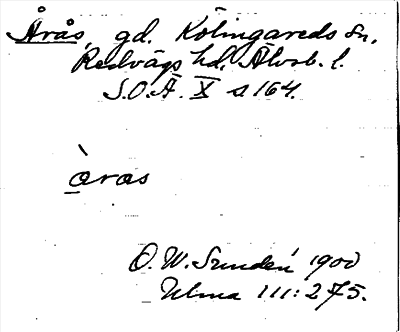 Årås, gd. Kölingareds sn,
Redvägs hd. Älvsb. l.
S.O.Ä. X s 164.
àras
O. W. Sundén 1900
Ulma 111:275.